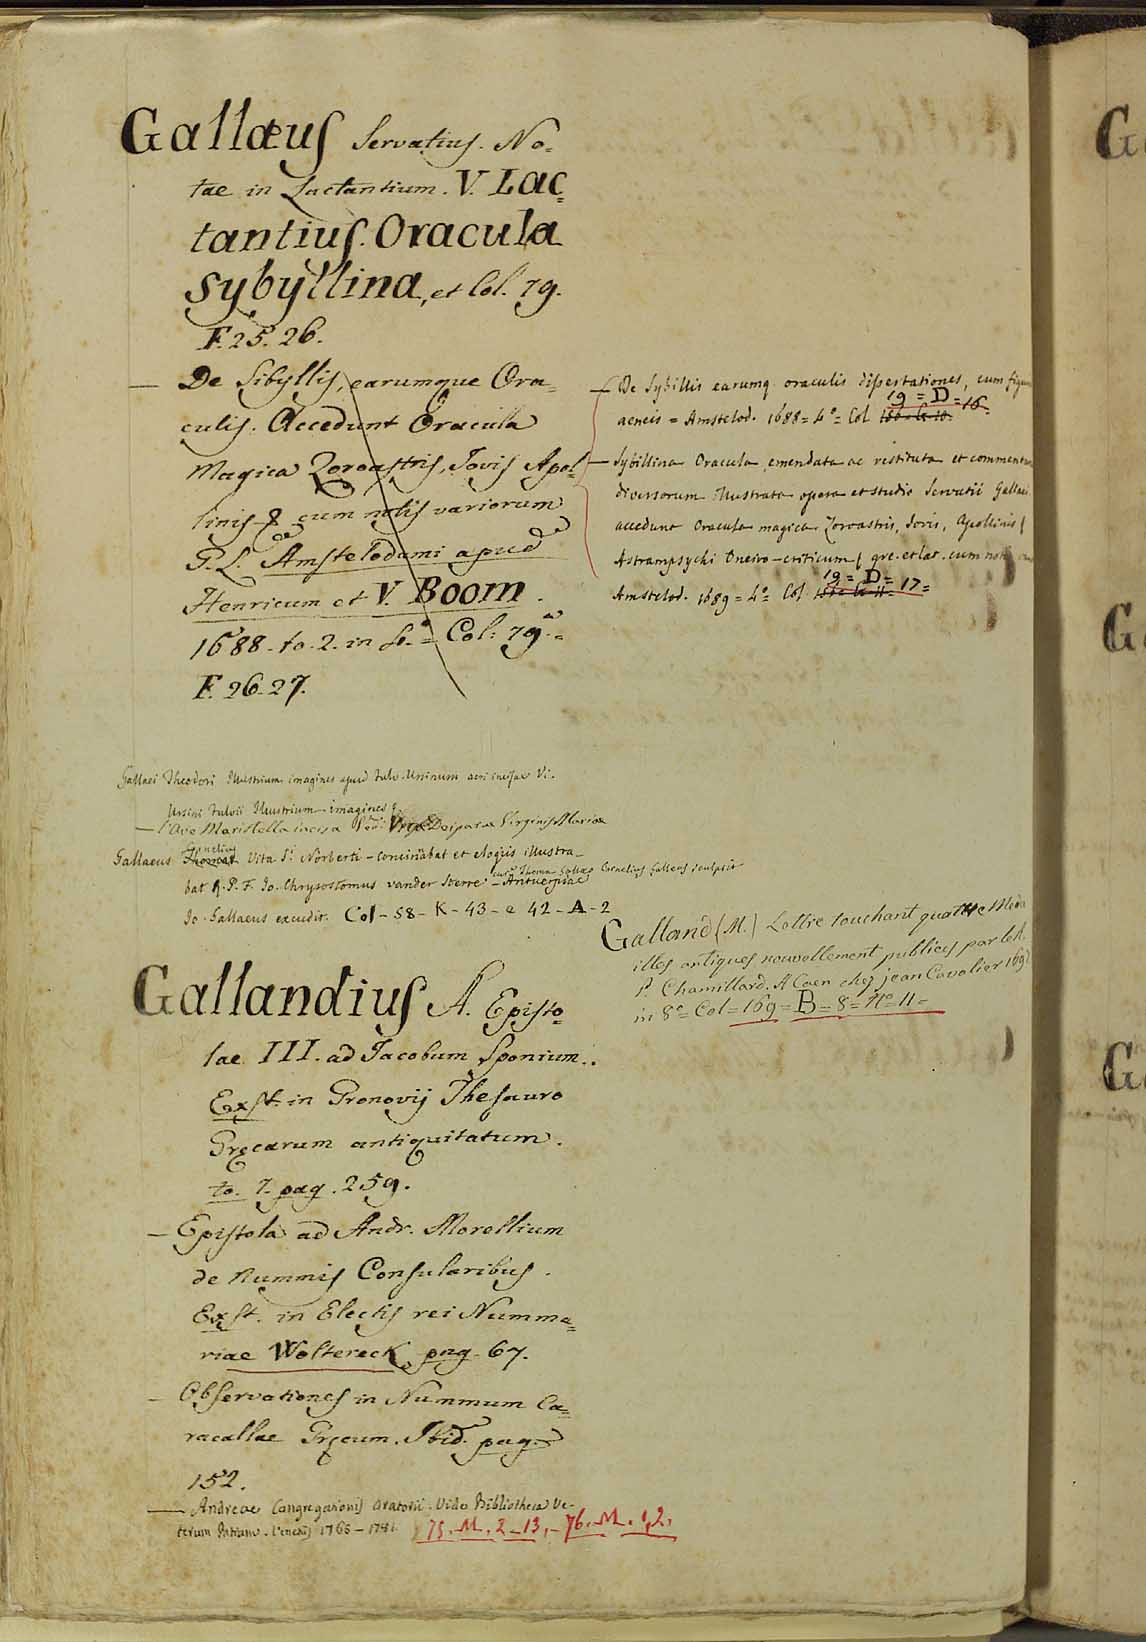 Gallæus Servatius. No=
tae in Lactantium. V. Lac=
tantius. Oracula
Sybyllina, et Col. 79.
F. 25. 26.
— De Sibyllis, earumque Ora=
culis. Accedunt Oracula
Magica Zoroastris, Jovis Apol=
linis & cum notis variorum
G. L. Amstelodami apud
Henricum et V. Boom.
1688. to. 2. in 4.° = Col: 79.=
F. 26-27.
— De Sybillis earumq. oraculis dissertationes, cum figuris
aeneis = Amstelod. 1688 = 4.° = Col 19 = D = 16.
— Sybillina Oracula emendata ac restituta et commentariis
diversorum illustrata opera et studio Servatii Gallaei
accedunt Oracula magica Zoroastris, Jovis, Apollinis
Astrampsychi Oneiro-criticum grę. et lat. cum notis
Amstelod. 1689 = 4.° = Col. 19 = D = 17 =
Gallaei Theodori Illustrium imagines apud Fulv. Ursinum aeri incisae V.
Ursini Fulvii Illustrium imagines &.
— Ave Maris stella incisa Deiparae Virginis Mariae
Gallaeus Cornelius Thomas Vita S.i Norberti – concinabat et elogiis illustra-
bat R. P. F. Jo. Chrysostomus vander Sterre – Antuerpiae Cornelius Gallaeus sculpsit
Jo. Gallaeus excudit. Col – 58 – K – 43 – e 42 – A – 2
Galland (M.) Lettre touchant quattre Méda
illes antiques nouvellement publiées par le R.
P. Chamillard. A Caen chez jean Cavalier 169
in 8.° = Col = 169 = B = 8 = n.° 11 =
Gallandius A. Episto=
lae III. ad Jacobum Sponium.
Exst. in Gronovij Thesauro
Gręcarum antiquitatum.
to. 7. pag. 259.
— Epistola ad Andr. Morellium
de Nummis Consularibus.
Exst. in Electis rei Numma=
riae Woltereck pag. 67.
— Observationes in Nummum Ca=
racallae Gręcum. Ibid. pag.
152.
— Andreae Congregationis Oratorii. Vide Bibliotheca Ve-
terum Patrum. Venetiis 1765 – 1781. 75. M. 2-13. – 76. M. 1,2.